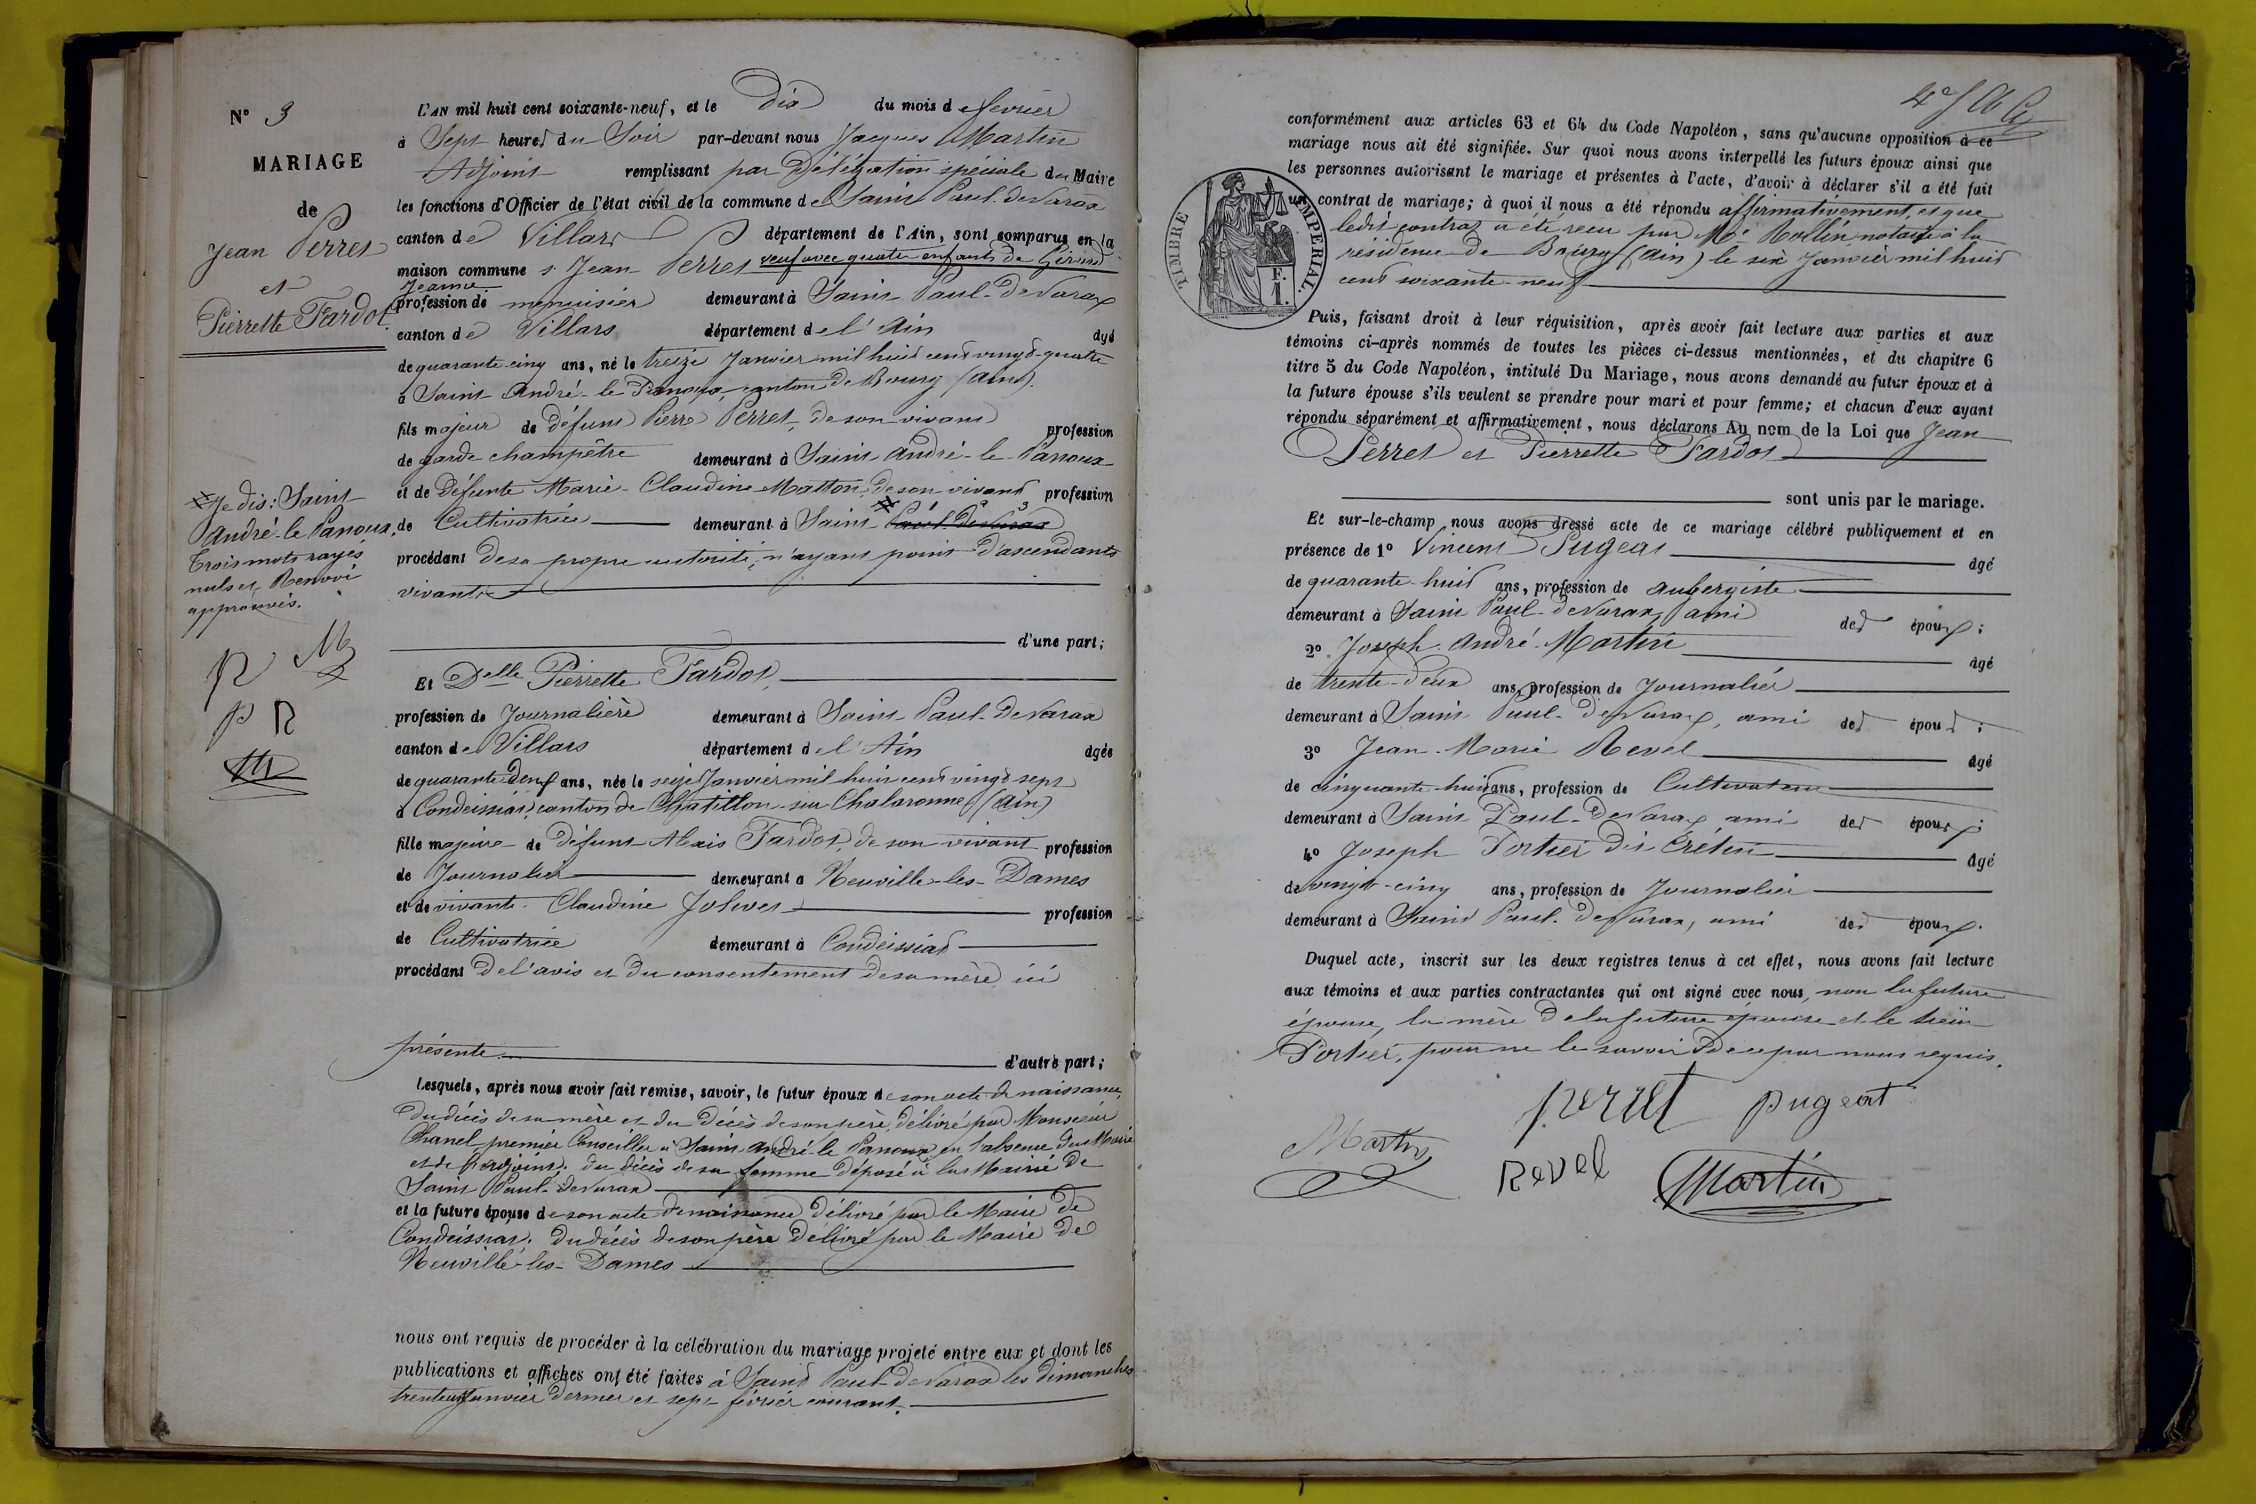 N° 3
MARIAGE
de
Jean Perret
et
Pierrette Fardot
L'AN mil huit cent soixante-neuf, et le Dix du mois de février
à Sept heures du Soir par-devant nous Jacques Martin
Adjoint remplissant par Délégation spéciale du Maire
les fonctions d'Officier de l'état civil de la commune de Saint Paul-de Varax
canton de Villars département de l'Ain, sont comparus en la
maison commune sr Jean Perret veuf avec quatre enfants de
Jeanne
profession de menuisier demeurant à Saint Paul-de Varax
canton de Villars département de l'Ain âgé
de quarante-cinq ans, né le treize Janvier mil huit cent vingt-quatre
à Saint André-le Panoux, canton de Bourg (Ain).
fils majeur de défunt Pierre Perret, de son vivant profession
de garde champêtre demeurant à Saint André-le-Panoux
et de Défunte Marie-Claudine Matton, de son vivant profession
de Cultivatrice demeurant à Saint Paul de Varax
procédant de sa propre autorité, n'ayant point d'ascendants
vivants
d'une part;
Je dis: Saint
André-le Panoux.
Trois mots rayés
nuls et Renvoi
approuvés.
P M
P R
M
Et Delle Pierrette Fardot,
profession de Journalière demeurant à Saint Paul-de Varax
canton de Villars département de l'Ain âgée
de quarante-deux ans, née le seize Janvier mil huit cent vingt sept
à Condeissiat, canton de Chatillon-sur Chalaronne (Ain)
fille majeure de défunt Alexis Fardot, de son vivant profession
de Journalier demeurant à Neuville-les-Dames
et de vivante Claudine Jolivet profession
de Cultivatrice demeurant à Condeissiat
procédant de l'avis et du consentement de sa mère ici
présente
d'autre part;
Lesquels, après nous avoir fait remise, savoir, le futur époux de son acte de naissance,
du décès de sa mère et du décès de son père, délivré par Monsieur
Chanel premier Conseiller à Saint André-le Panoux en l'absence du Maire
et de l'adjoint; du décès de sa femme déposé à la Mairie de
Saint Paul-de Varax
et la future épouse de son acte de naissance délivré par le Maire de
Condeissiat, du décès de son père délivré par le Maire de
Neuville-les-Dames
nous ont requis de procéder à la célébration du mariage projeté entre eux et dont les
publications et affiches ont été faites à Saint Paul-de Varax les dimanches
trente un Janvier dernier et sept février courant.
conformément aux articles 63 et 64 du Code Napoléon, sans qu'aucune opposition à ce
mariage nous ait été signifiée. Sur quoi nous avons interpellé les futurs époux ainsi que
les personnes autorisant le mariage et présentes à l'acte, d'avoir à déclarer s'il a été fait
un contrat de mariage; à quoi il nous a été répondu affirmativement, et que
ledit contrat a été reçu par Me Rollin notaire à la
résidence de Bourg (Ain) le six Janvier mil huit
cent soixante-neuf
TIMBRE IMPERIAL.
F.
1.
Puis, faisant droit à leur réquisition, après avoir fait lecture aux parties et aux
témoins ci-après nommés de toutes les pièces ci-dessus mentionnées, et du chapitre 6
titre 5 du Code Napoléon, intitulé Du Mariage, nous avons demandé au futur époux et à
la future épouse s'ils veulent se prendre pour mari et pour femme; et chacun d'eux ayant
répondu séparément et affirmativement, nous déclarons Au nom de la Loi que Jean
Perret et Pierrette Fardot
sont unis par le mariage.
Et sur-le-champ nous avons dressé acte de ce mariage célébré publiquement et en
présence de 1° Vincent Pugeat âgé
de quarante-huit ans, profession de aubergiste
demeurant à Saint Paul-de Varax, ami des époux;
2° Joseph-André Martin âgé
de trente-deux ans, profession de Journalier
demeurant à Saint Paul-de Varax, ami des époux;
3° Jean-Marie Revel âgé
de cinquante-huit ans, profession de Cultivateur
demeurant à Saint Paul-de Varax, ami des époux;
4° Joseph Portier dit Crétin âgé
de vingt-cinq ans, profession de Journalier
demeurant à Saint Paul-de Varax, ami des époux.
Duquel acte, inscrit sur les deux registres tenus à cet effet, nous avons fait lecture
aux témoins et aux parties contractantes qui ont signé avec nous, non la future
épouse, la mère de la future épouse et le sieur
Portier, pour ne le savoir de ce par nous requis.
perret pugeat
Martin
Revel Martin